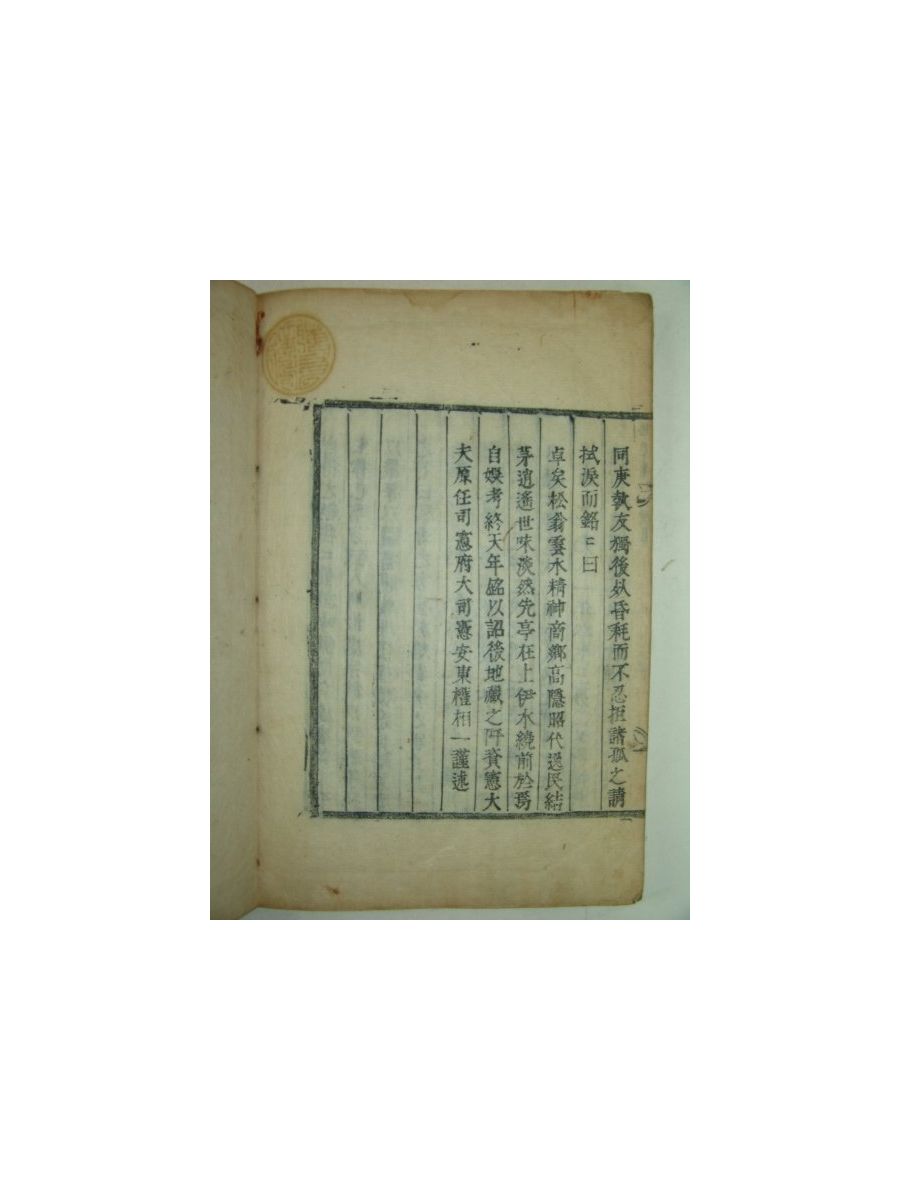 同庚執友獨後死昏耗而不忍拒諸孤之請
拭淚而銘〻曰
卓矣松翁雲水精神商鄕高隱昭代逸民結
茅逍遙世味淡然先亭在上伊水繞前於焉
自娛考終天年銘以詔後地藏之阡資憲大
夫原任司憲府大司憲安東權相一謹述